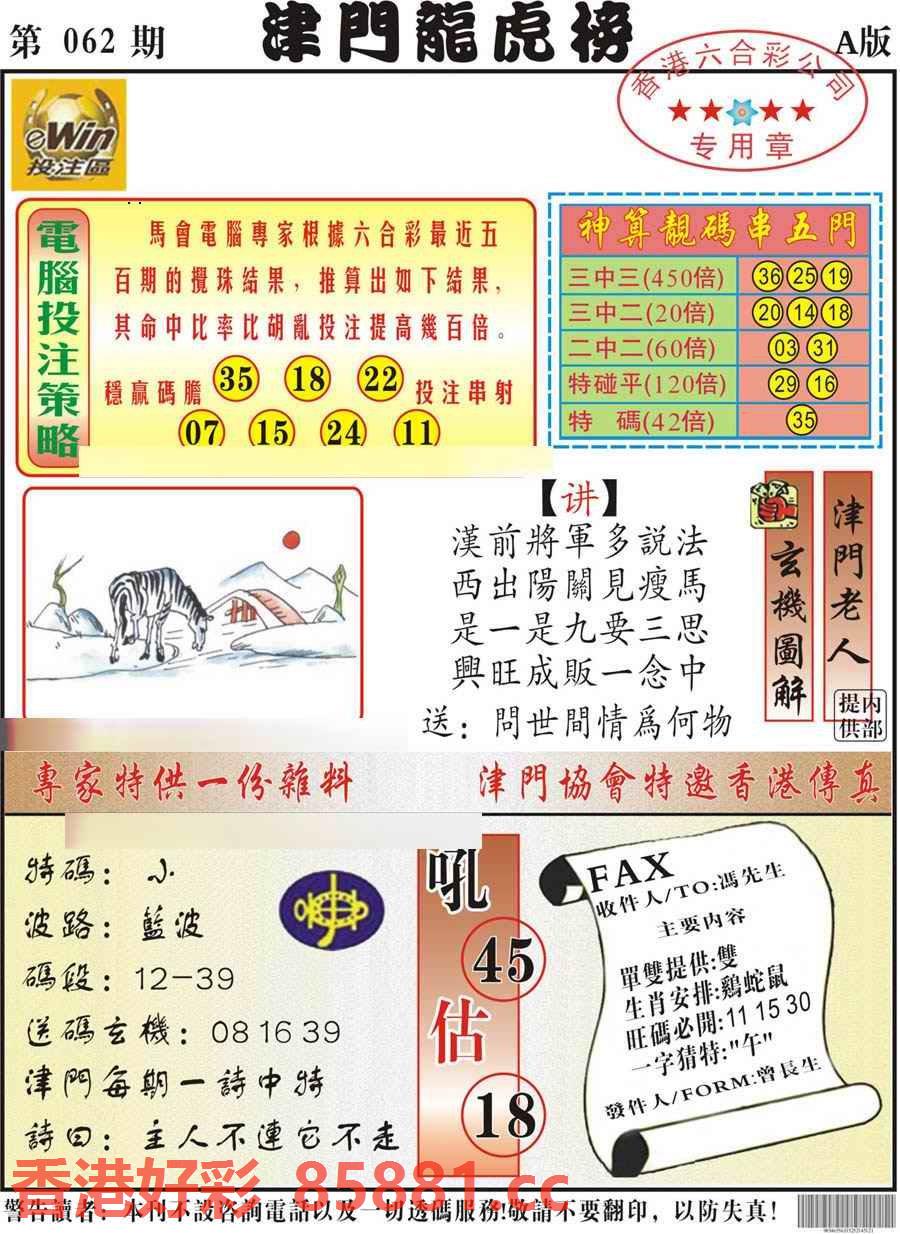 第 062 期
津門龍虎榜
A版
香港六合彩公司
专用章
eWin
投注區
電腦投注策略
馬會電腦專家根據六合彩最近五
百期的攪珠結果，推算出如下結果，
其命中比率比胡亂投注提高幾百倍。
穩贏碼膽 35 18 22 投注串射
07 15 24 11
神算靚碼串五門
三中三(450倍) 36 25 19
三中二(20倍) 20 14 18
二中二(60倍) 03 31
特碰平(120倍) 29 16
特 碼(42倍) 35
【讲】
漢前將軍多説法
西出陽關見瘦馬
是一是九要三思
興旺成販一念中
送：問世間情爲何物
玄機圖解
津門老人
内部提供
專家特供一份雜料
津門協會特邀香港傳真
特碼：小
波路：藍波
碼段：12-39
送碼玄機：08 16 39
津門每期一詩中特
詩曰：主人不連它不走
吼
45
估
18
FAX
收件人/TO:馮先生
主要内容
單雙提供:雙
生肖安排:鷄蛇鼠
旺碼必開:11 15 30
一字猜特:"午"
發件人/FORM:曾長生
香港好彩 85881.cc
警告讀者：本刊不設咨詢電話以及一切透碼服務!敬請不要翻印，以防失真!